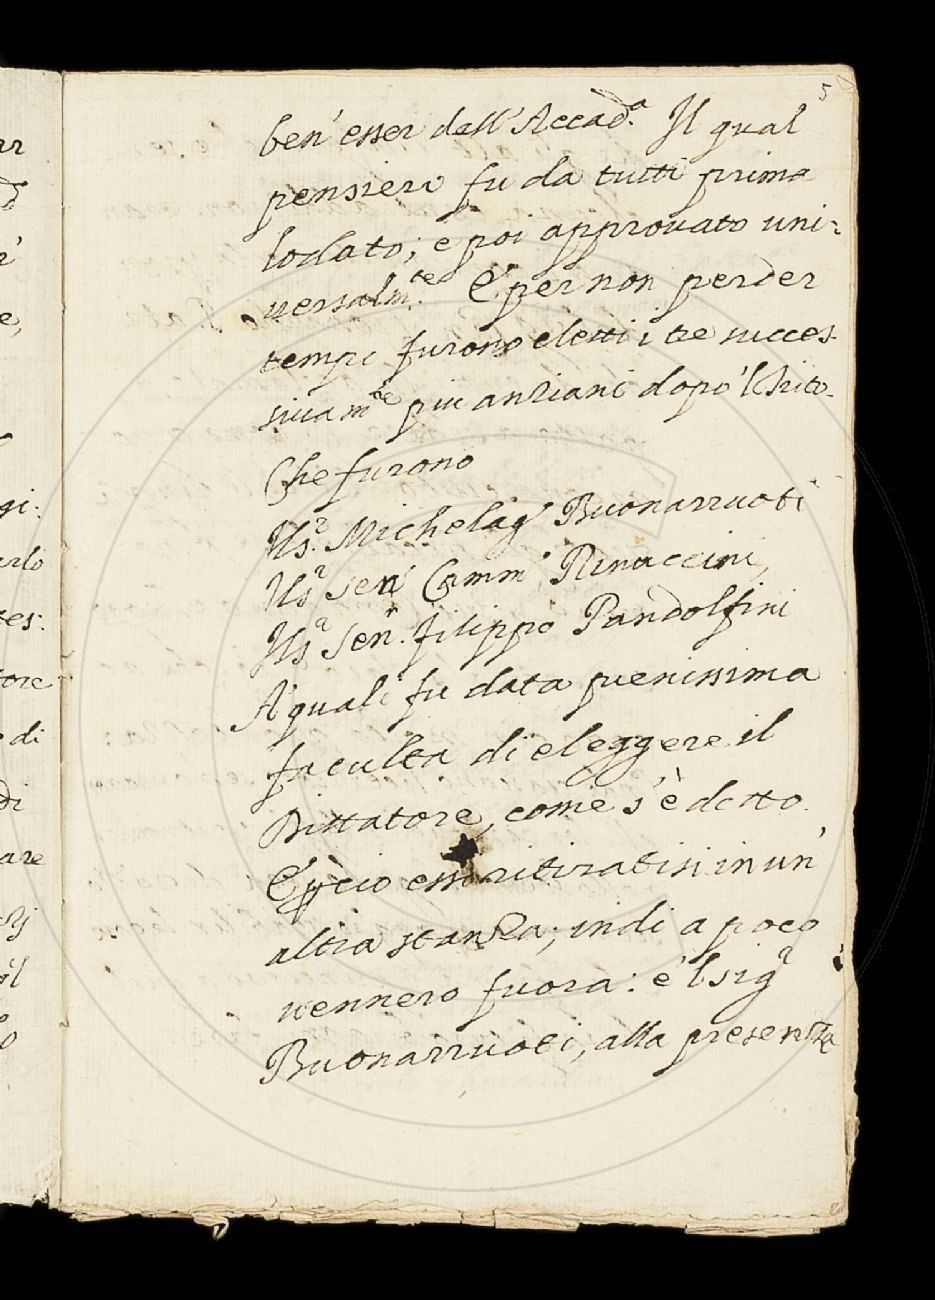 5
ben' esser dell' Accad.ª Il qual
pensiero fu da tutti prima
lodato; e poi approuato uni-
uersalm.te E per non perder
tempo furono eletti i tre succes-
siuam.te piu anziani dopo 'l
Che furono
Il s.r Michelag.o Buonarruoti
Il s.r Sen. Camm.o Rinuccini,
Il s.r Sen.r Filippo Pandolfini
A' quali fu data pienissima
faculta di eleggere il
Dittatore, come s'è detto.
E p̱ciò essi ritiratisi in un'
altra stanza; indi a poco
uennero fuora: e 'l sig.r
Buonarruoti, alla presenza
ar
e,
gi:
arlo
tes:
tore
di
di
are